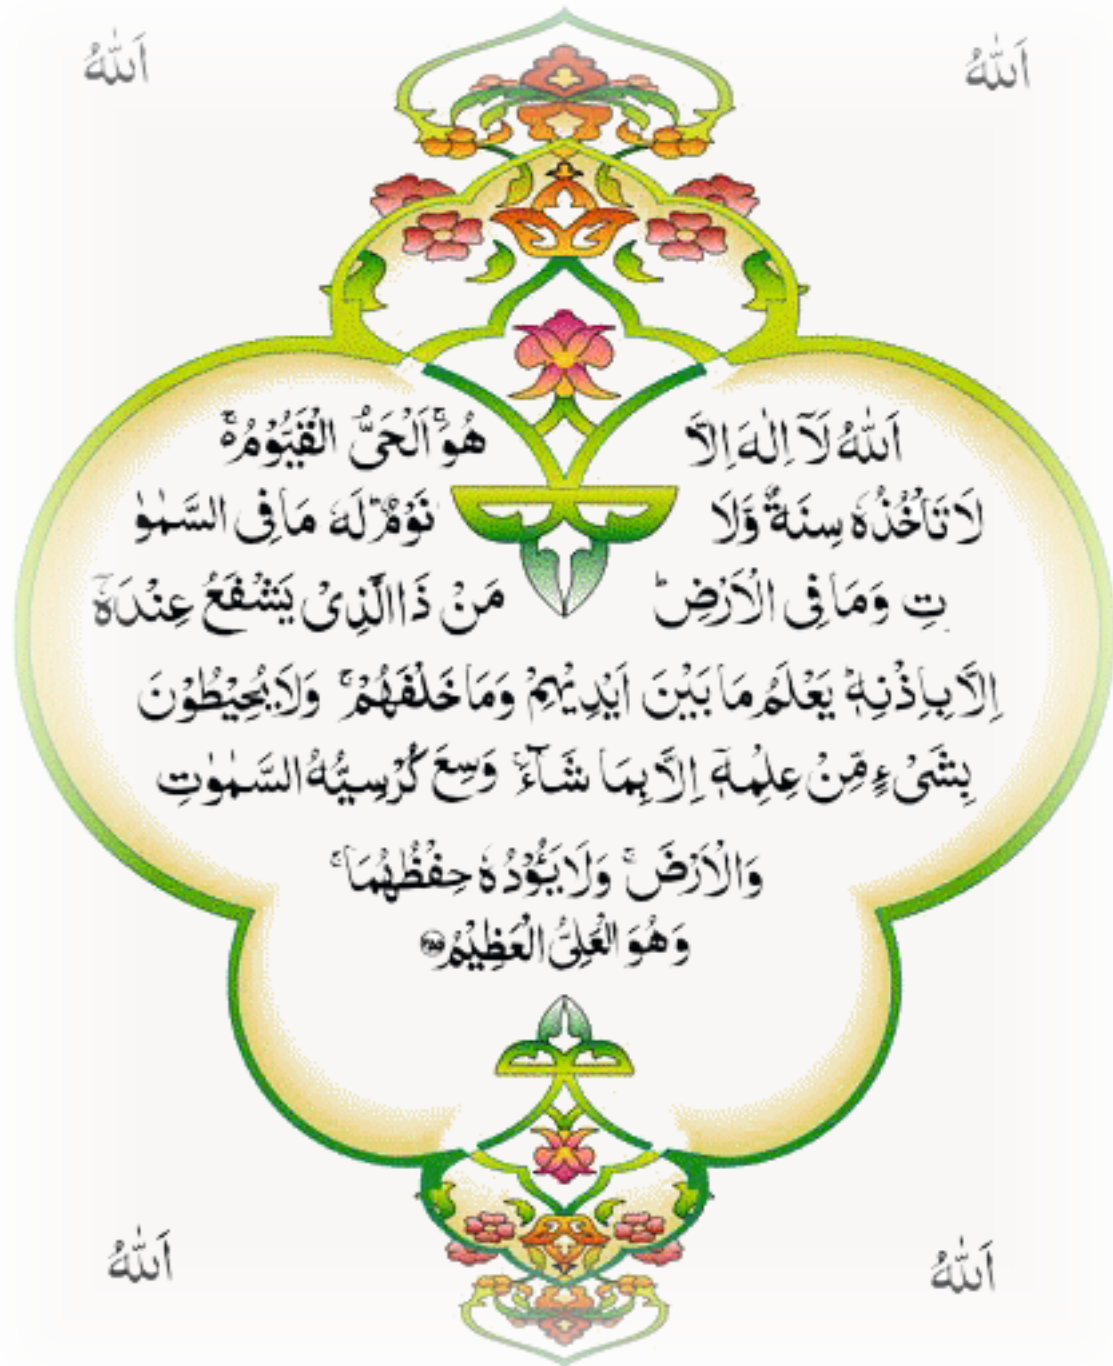 اَللّٰهُ اَللّٰهُ
اَللّٰهُ لَاۤ اِلٰهَ اِلَّا هُوَۚ اَلْحَیُّ الْقَیُّوْمُ ۚ
لَا تَاْخُذُهٗ سِنَةٌ وَّلَا نَوْمٌؕ لَهٗ مَا فِی السَّمٰوٰ
تِ وَمَا فِی الْاَرْضِؕ مَنْ ذَا الَّذِیْ یَشْفَعُ عِنْدَهٗۤ
اِلَّا بِاِذْنِهٖؕ یَعْلَمُ مَا بَیْنَ اَیْدِیْهِمْ وَمَا خَلْفَهُمْۚ وَلَا یُحِیْطُوْنَ
بِشَیْءٍ مِّنْ عِلْمِهٖۤ اِلَّا بِمَا شَآءَۚ وَسِعَ كُرْسِیُّهُ السَّمٰوٰتِ
وَالْاَرْضَۚ وَلَا یَـُٔوْدُهٗ حِفْظُهُمَاۚ
وَهُوَ الْعَلِیُّ الْعَظِیْمُ ۲۵۵
اَللّٰهُ اَللّٰهُ